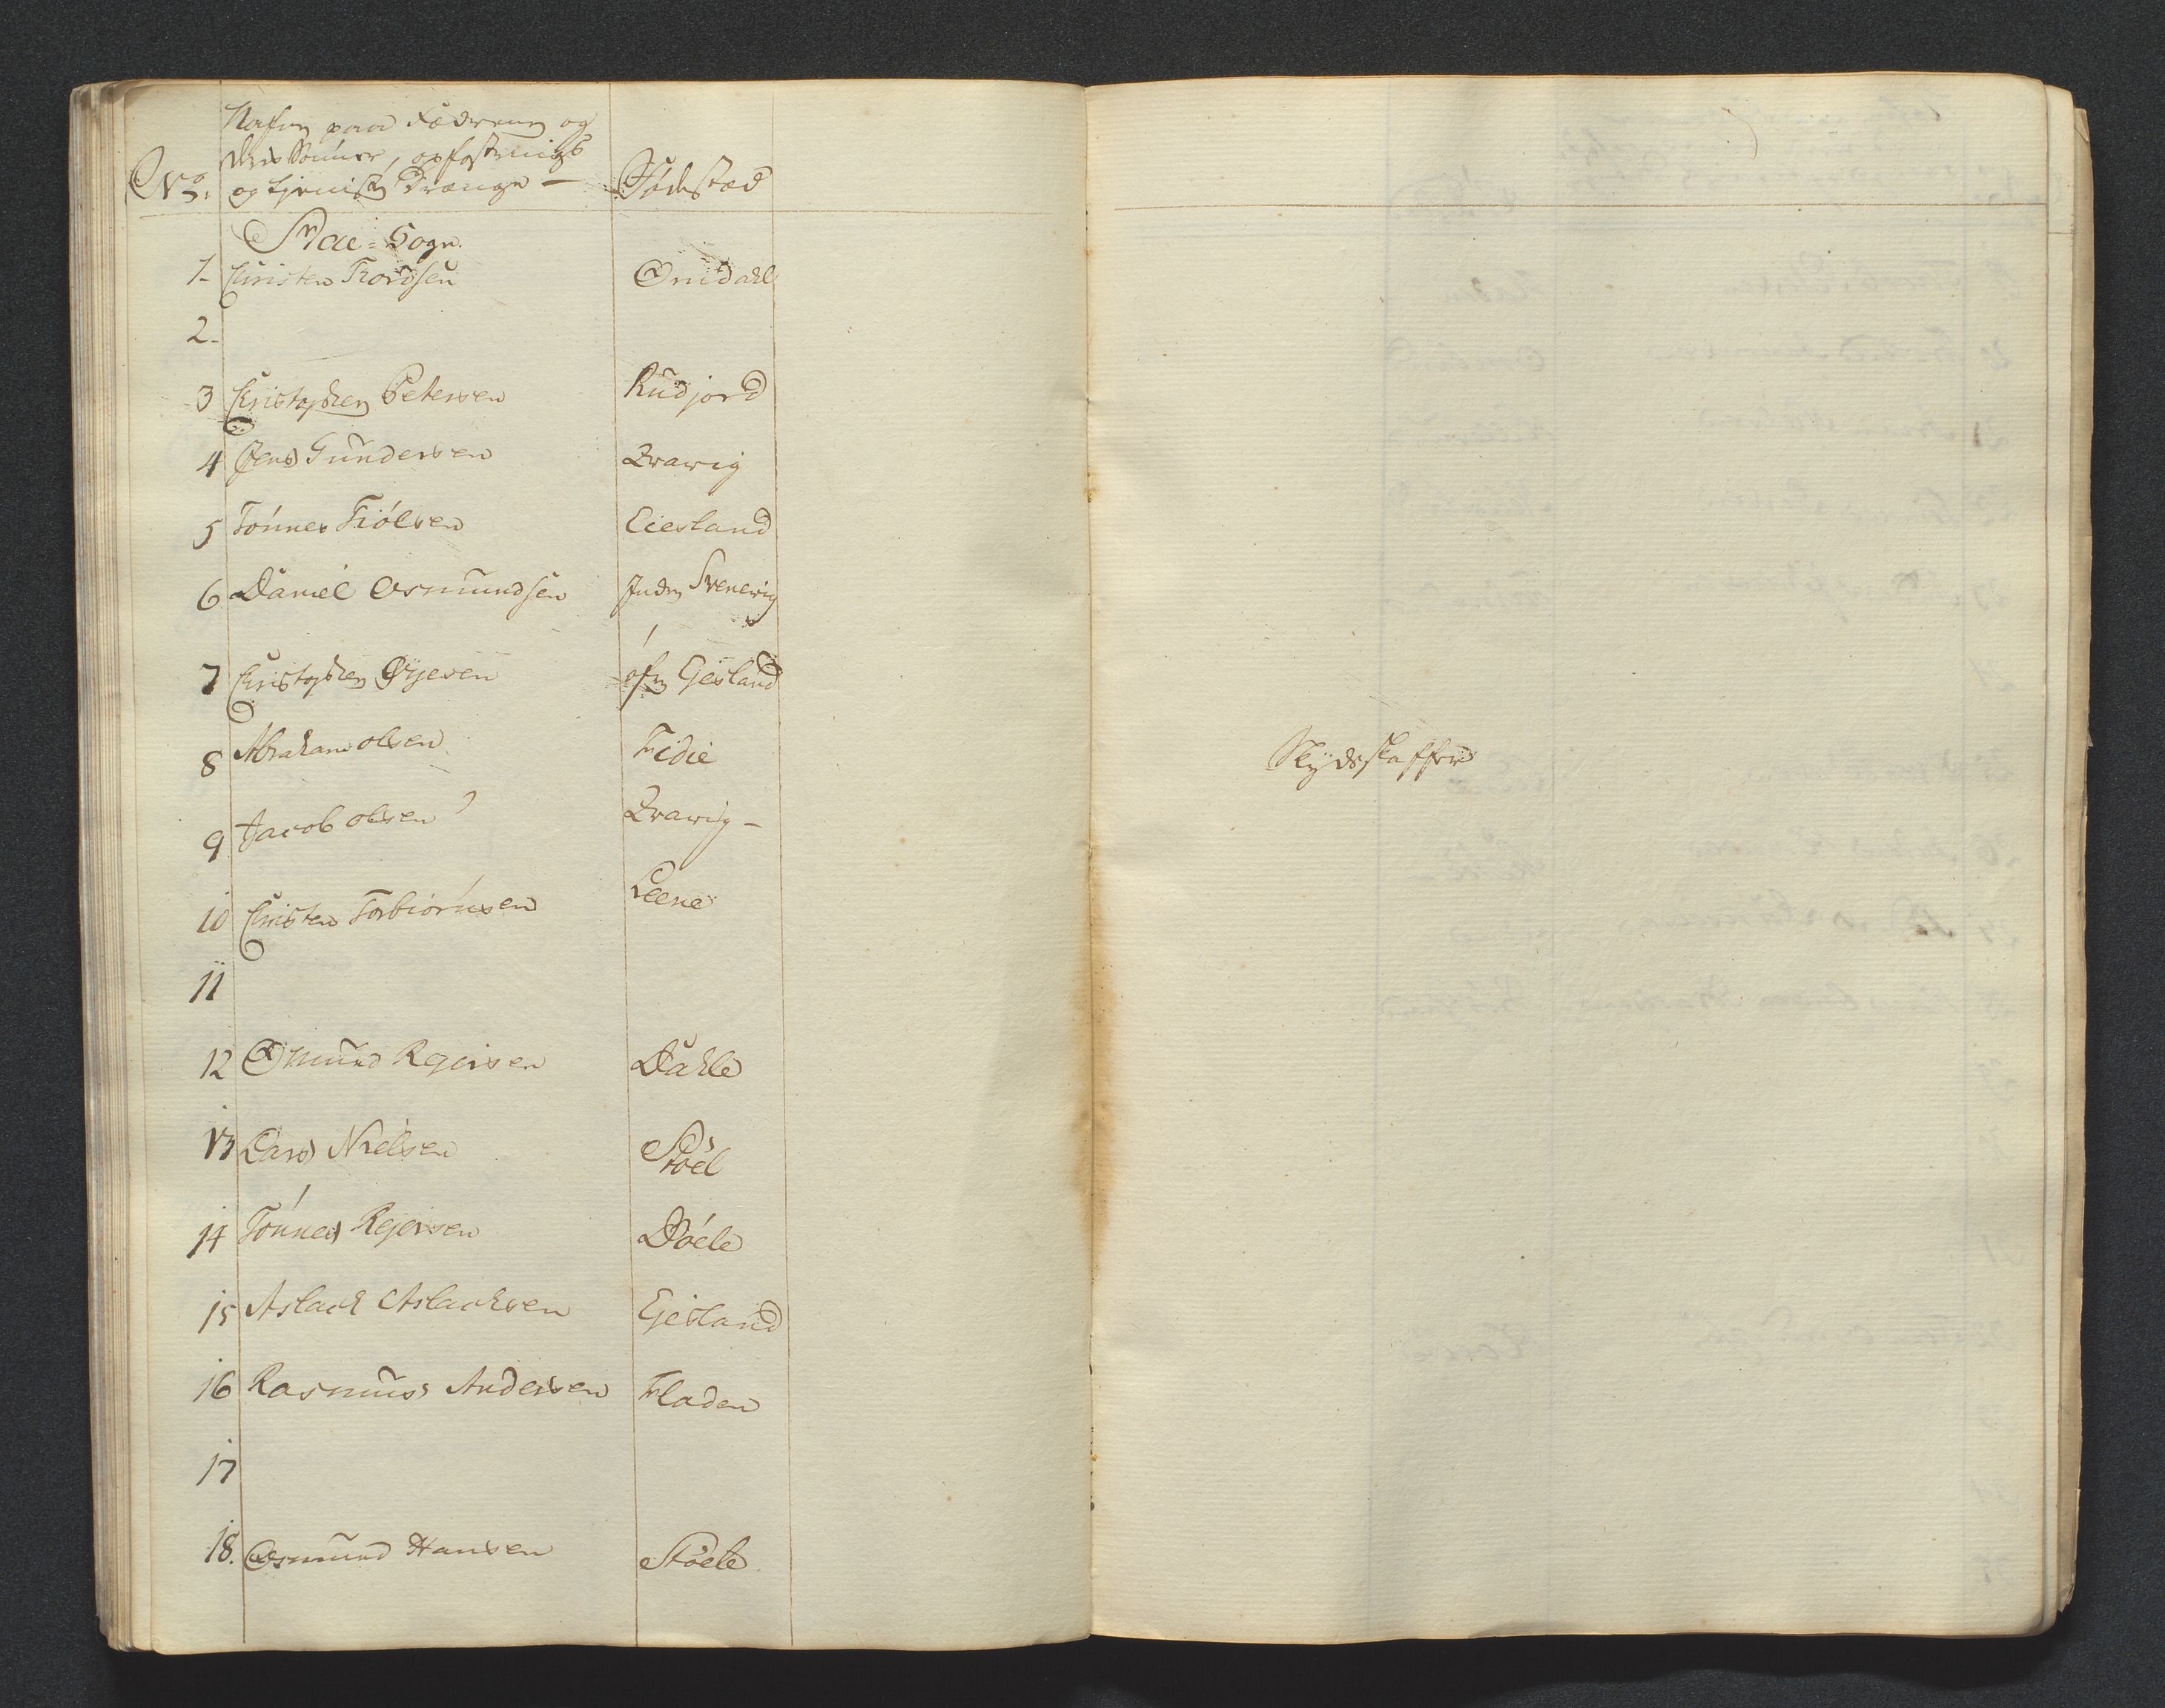 Nafn paa Fædrenn og
deris Sønner, opfostrings
No. og tjeniste Drænge — Fødestæd
Svae = Sogn.
1- Christen Thordsen Omdahl
2-
3 Christopher Petersen Rudjord
4 Jens Gundersen Qvavig
5 Tønnes Tiølsen Eiesland
6 Daniel Osmundsen Indre Svenevig
7 Christopher Øÿesen øfre Ejesland
8 Abraham olsen Fidie
9 Jacob olsen Qvavig -
10 Christen Torbiørnsen Leene
11
12 Osmund Rejersen Dahle
13 Lars Nielsen Støel
14 Tønnes Rejersen Døele
15 Aslach Aslachsen Ejesland
16 Rasmus Andersen Fladen
17
18. Osmund Hansen Støele
Skÿdsskaffer